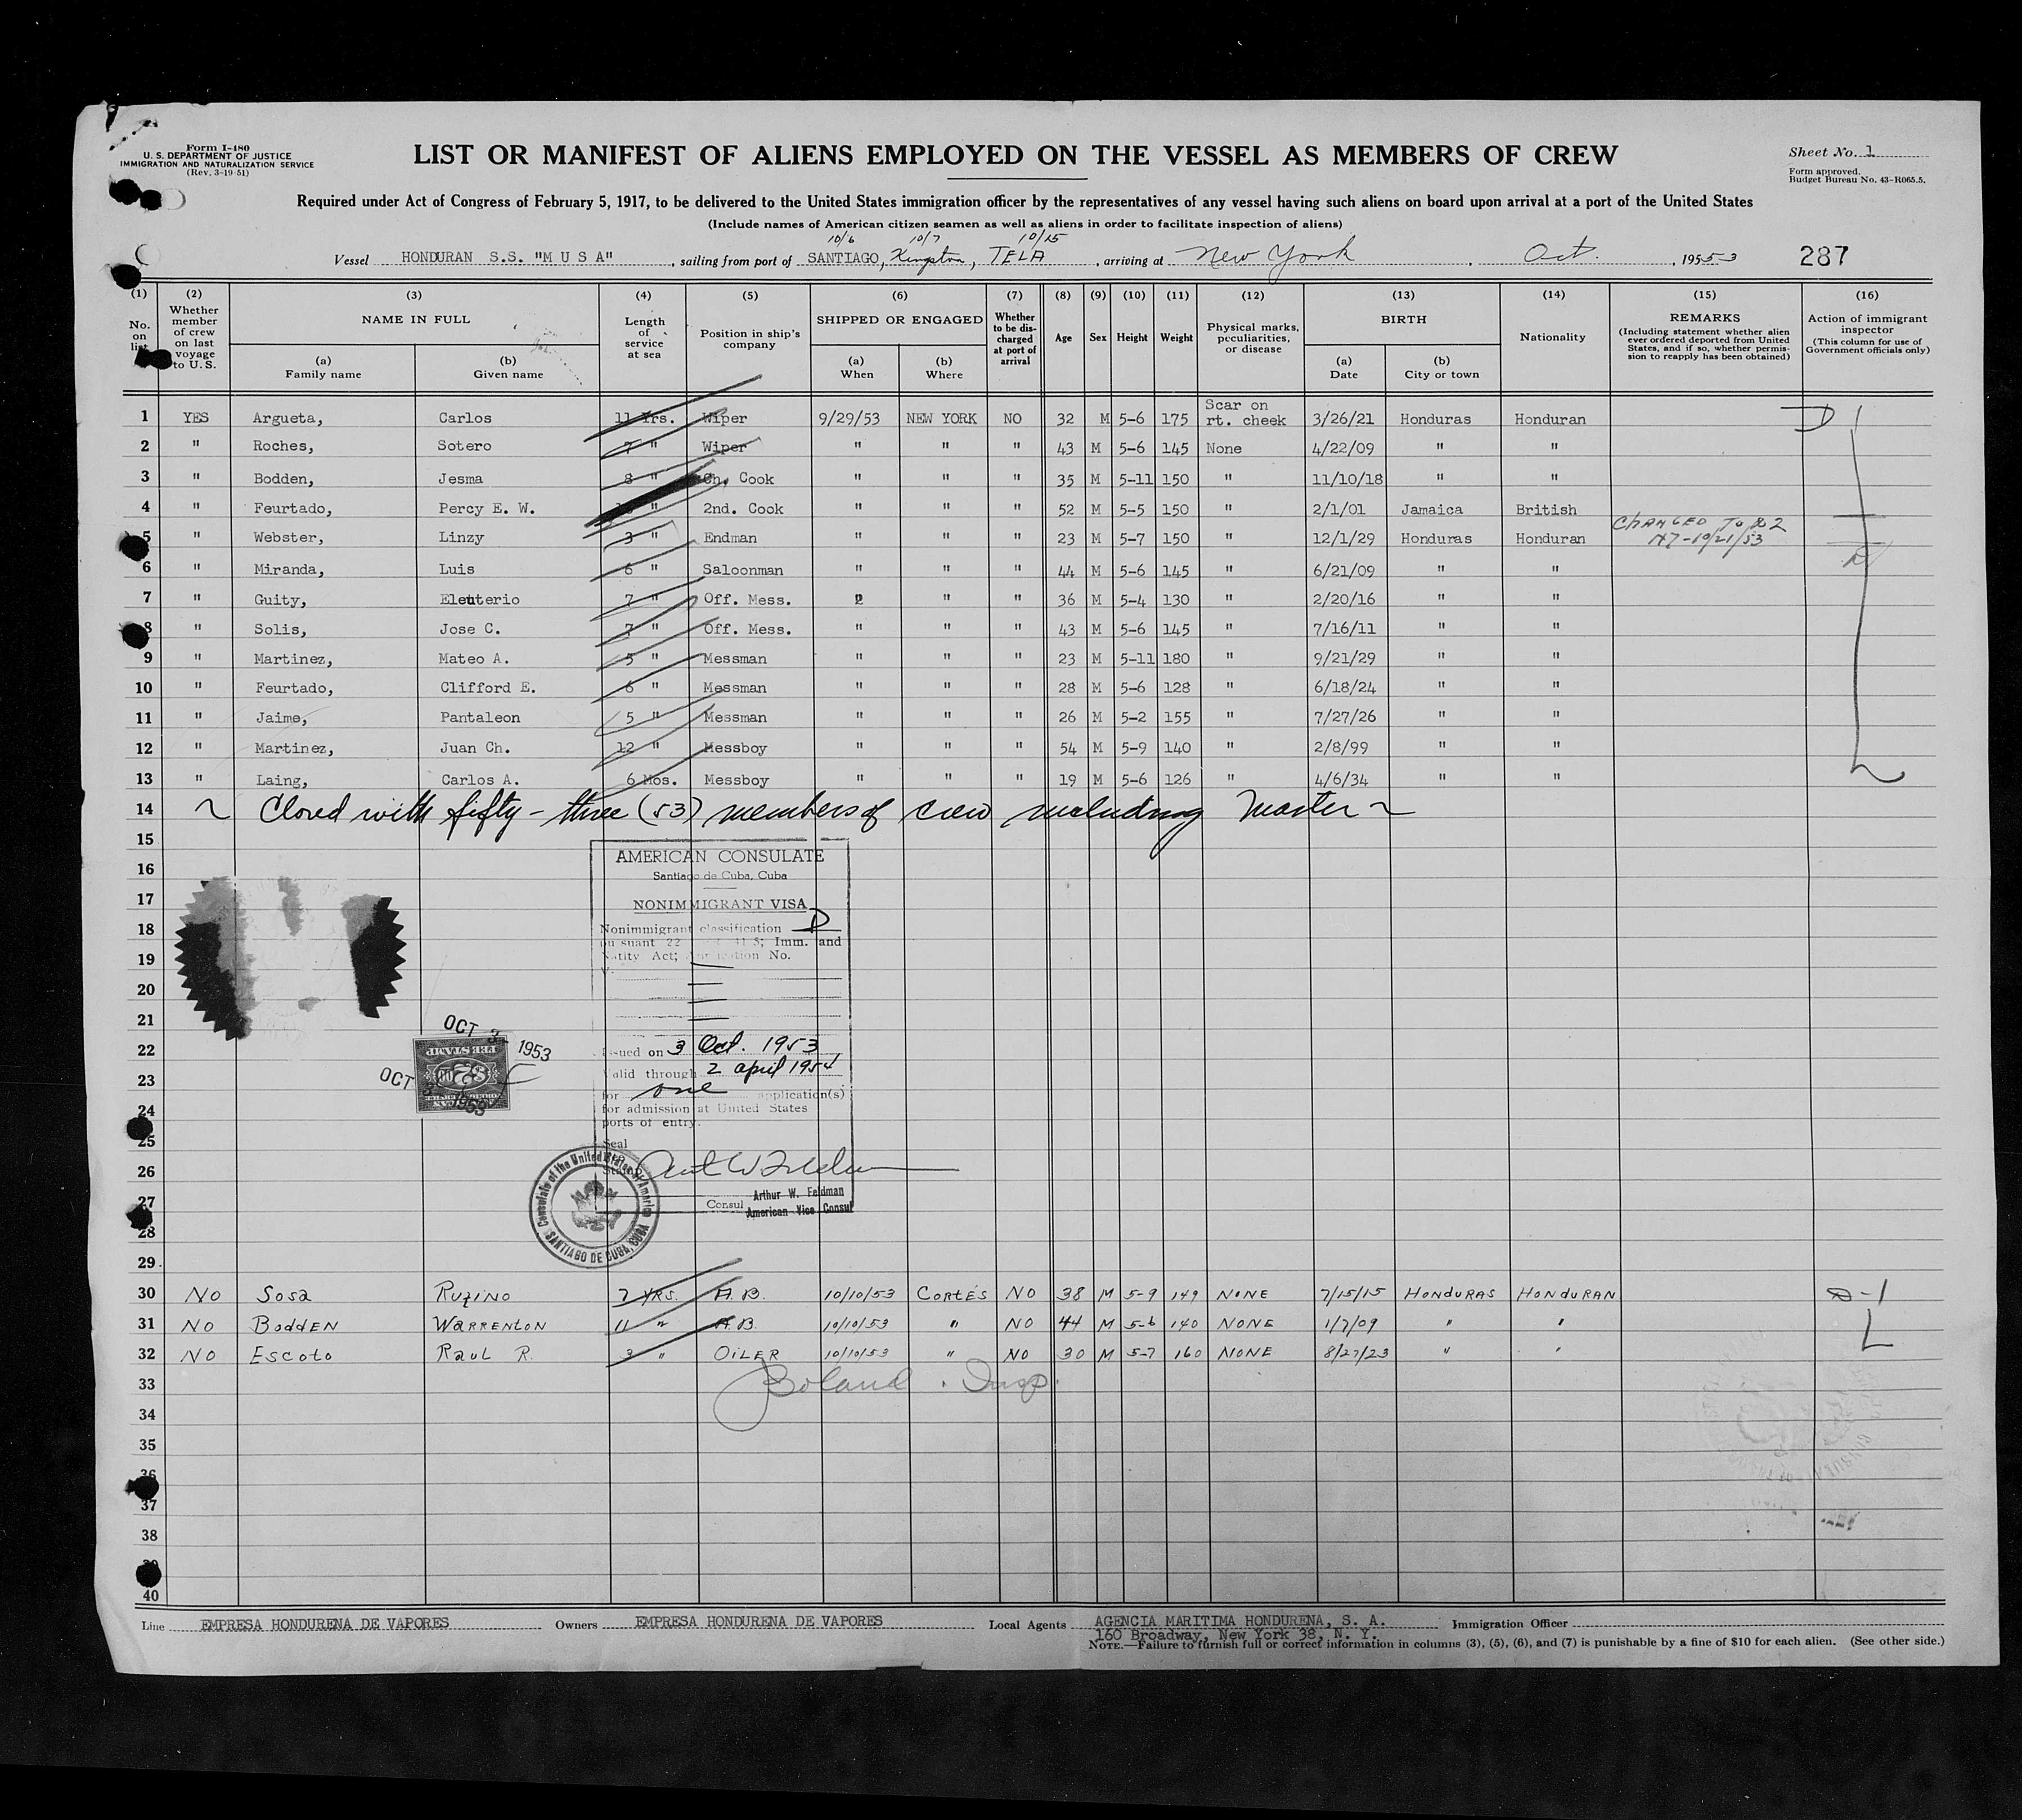 Form I-480
U. S. DEPARTMENT OF JUSTICE
IMMIGRATION AND NATURALIZATION SERVICE
(Rev. 3-19-51)
LIST OR MANIFEST OF ALIENS EMPLOYED ON THE VESSEL AS MEMBERS OF CREW
Sheet No. 1
Form approved.
Budget Bureau No. 43-R065.5.
Required under Act of Congress of February 5, 1917, to be delivered to the United States immigration officer by the representatives of any vessel having such aliens on board upon arrival at a port of the United States
(Include names of American citizen seamen as well as aliens in order to facilitate inspection of aliens)
10/6 10/7 10/15
Vessel HONDURAN S.S. "M U S A", sailing from port of SANTIAGO, Kingston, TELA, arriving at New York, Oct., 1953 287
(1) No. on list
(2) Whether member of crew on last voyage to U. S.
(3) NAME IN FULL (a) Family name (b) Given name
(4) Length of service at sea
(5) Position in ship's company
(6) SHIPPED OR ENGAGED (a) When (b) Where
(7) Whether to be discharged at port of arrival
(8) Age
(9) Sex
(10) Height
(11) Weight
(12) Physical marks, peculiarities, or disease
(13) BIRTH (a) Date (b) City or town
(14) Nationality
(15) REMARKS (Including statement whether alien ever ordered deported from United States, and if so, whether permission to reapply has been obtained)
(16) Action of immigrant inspector (This column for use of Government officials only)
1 YES Argueta, Carlos 11 Yrs. Wiper 9/29/53 NEW YORK NO 32 M 5-6 175 Scar on rt. cheek 3/26/21 Honduras Honduran D 1
2 " Roches, Sotero 7 " Wiper " " " 43 M 5-6 145 None 4/22/09 " "
3 " Bodden, Jesma 8 " Ch. Cook " " " 35 M 5-11 150 " 11/10/18 " "
4 " Feurtado, Percy E. W. " 2nd. Cook " " " 52 M 5-5 150 " 2/1/01 Jamaica British
5 " Webster, Linzy 3 " Endman " " " 23 M 5-7 150 " 12/1/29 Honduras Honduran CHANGED TO 10/21/53
6 " Miranda, Luis 6 " Saloonman " " " 44 M 5-6 145 " 6/21/09 " "
7 " Guity, Eleuterio 7 " Off. Mess. " " " 36 M 5-4 130 " 2/20/16 " "
8 " Solis, Jose C. 7 " Off. Mess. " " " 43 M 5-6 145 " 7/16/11 " "
9 " Martinez, Mateo A. 5 " Messman " " " 23 M 5-11 180 " 9/21/29 " "
10 " Feurtado, Clifford E. 6 " Messman " " " 28 M 5-6 128 " 6/18/24 " "
11 " Jaime, Pantaleon 5 " Messman " " " 26 M 5-2 155 " 7/27/26 " "
12 " Martinez, Juan Ch. 12 " Messboy " " " 54 M 5-9 140 " 2/8/99 " "
13 " Laing, Carlos A. 6 Mos. Messboy " " " 19 M 5-6 126 " 4/6/34 " "
14 ~ Closed with fifty-three (53) members of crew including Master ~
15
AMERICAN CONSULATE
16
Santiago de Cuba, Cuba
17
NONIMMIGRANT VISA
18
Nonimmigrant classification D
pursuant 22 41 5; Imm. and
19
Act; Application No.
V
20
21
OCT 3 1953
22
Issued on 3 Oct. 1953
FEE STAMP
23
Valid through 2 april 1954
OCT 3 1953
$2 00
for one application(s)
24
for admission at United States
ports of entry.
25
Seal
26
Consulate of the United States of America
SANTIAGO DE CUBA, CUBA
Arthur W. Feldman
27
Consul
American Vice Consul
28
29
30 NO Sosa Rufino 7 YRS. A.B. 10/10/53 CORTÉS NO 38 M 5-9 149 NONE 7/15/15 HONDURAS HONDURAN D-1
31 NO BODDEN WARRENTON 11 " A.B. 10/10/53 " NO 44 M 5-6 140 NONE 1/7/09 " "
32 NO Escoto Raul R. 3 " OILER 10/10/53 " NO 30 M 5-7 160 NONE 8/27/23 " "
33 Boland. Insp.
34
35
36
37
38
39
40
Line EMPRESA HONDURENA DE VAPORES Owners EMPRESA HONDURENA DE VAPORES Local Agents AGENCIA MARITIMA HONDURENA, S. A. Immigration Officer
160 Broadway, New York 38, N. Y.
NOTE.—Failure to furnish full or correct information in columns (3), (5), (6), and (7) is punishable by a fine of $10 for each alien. (See other side.)